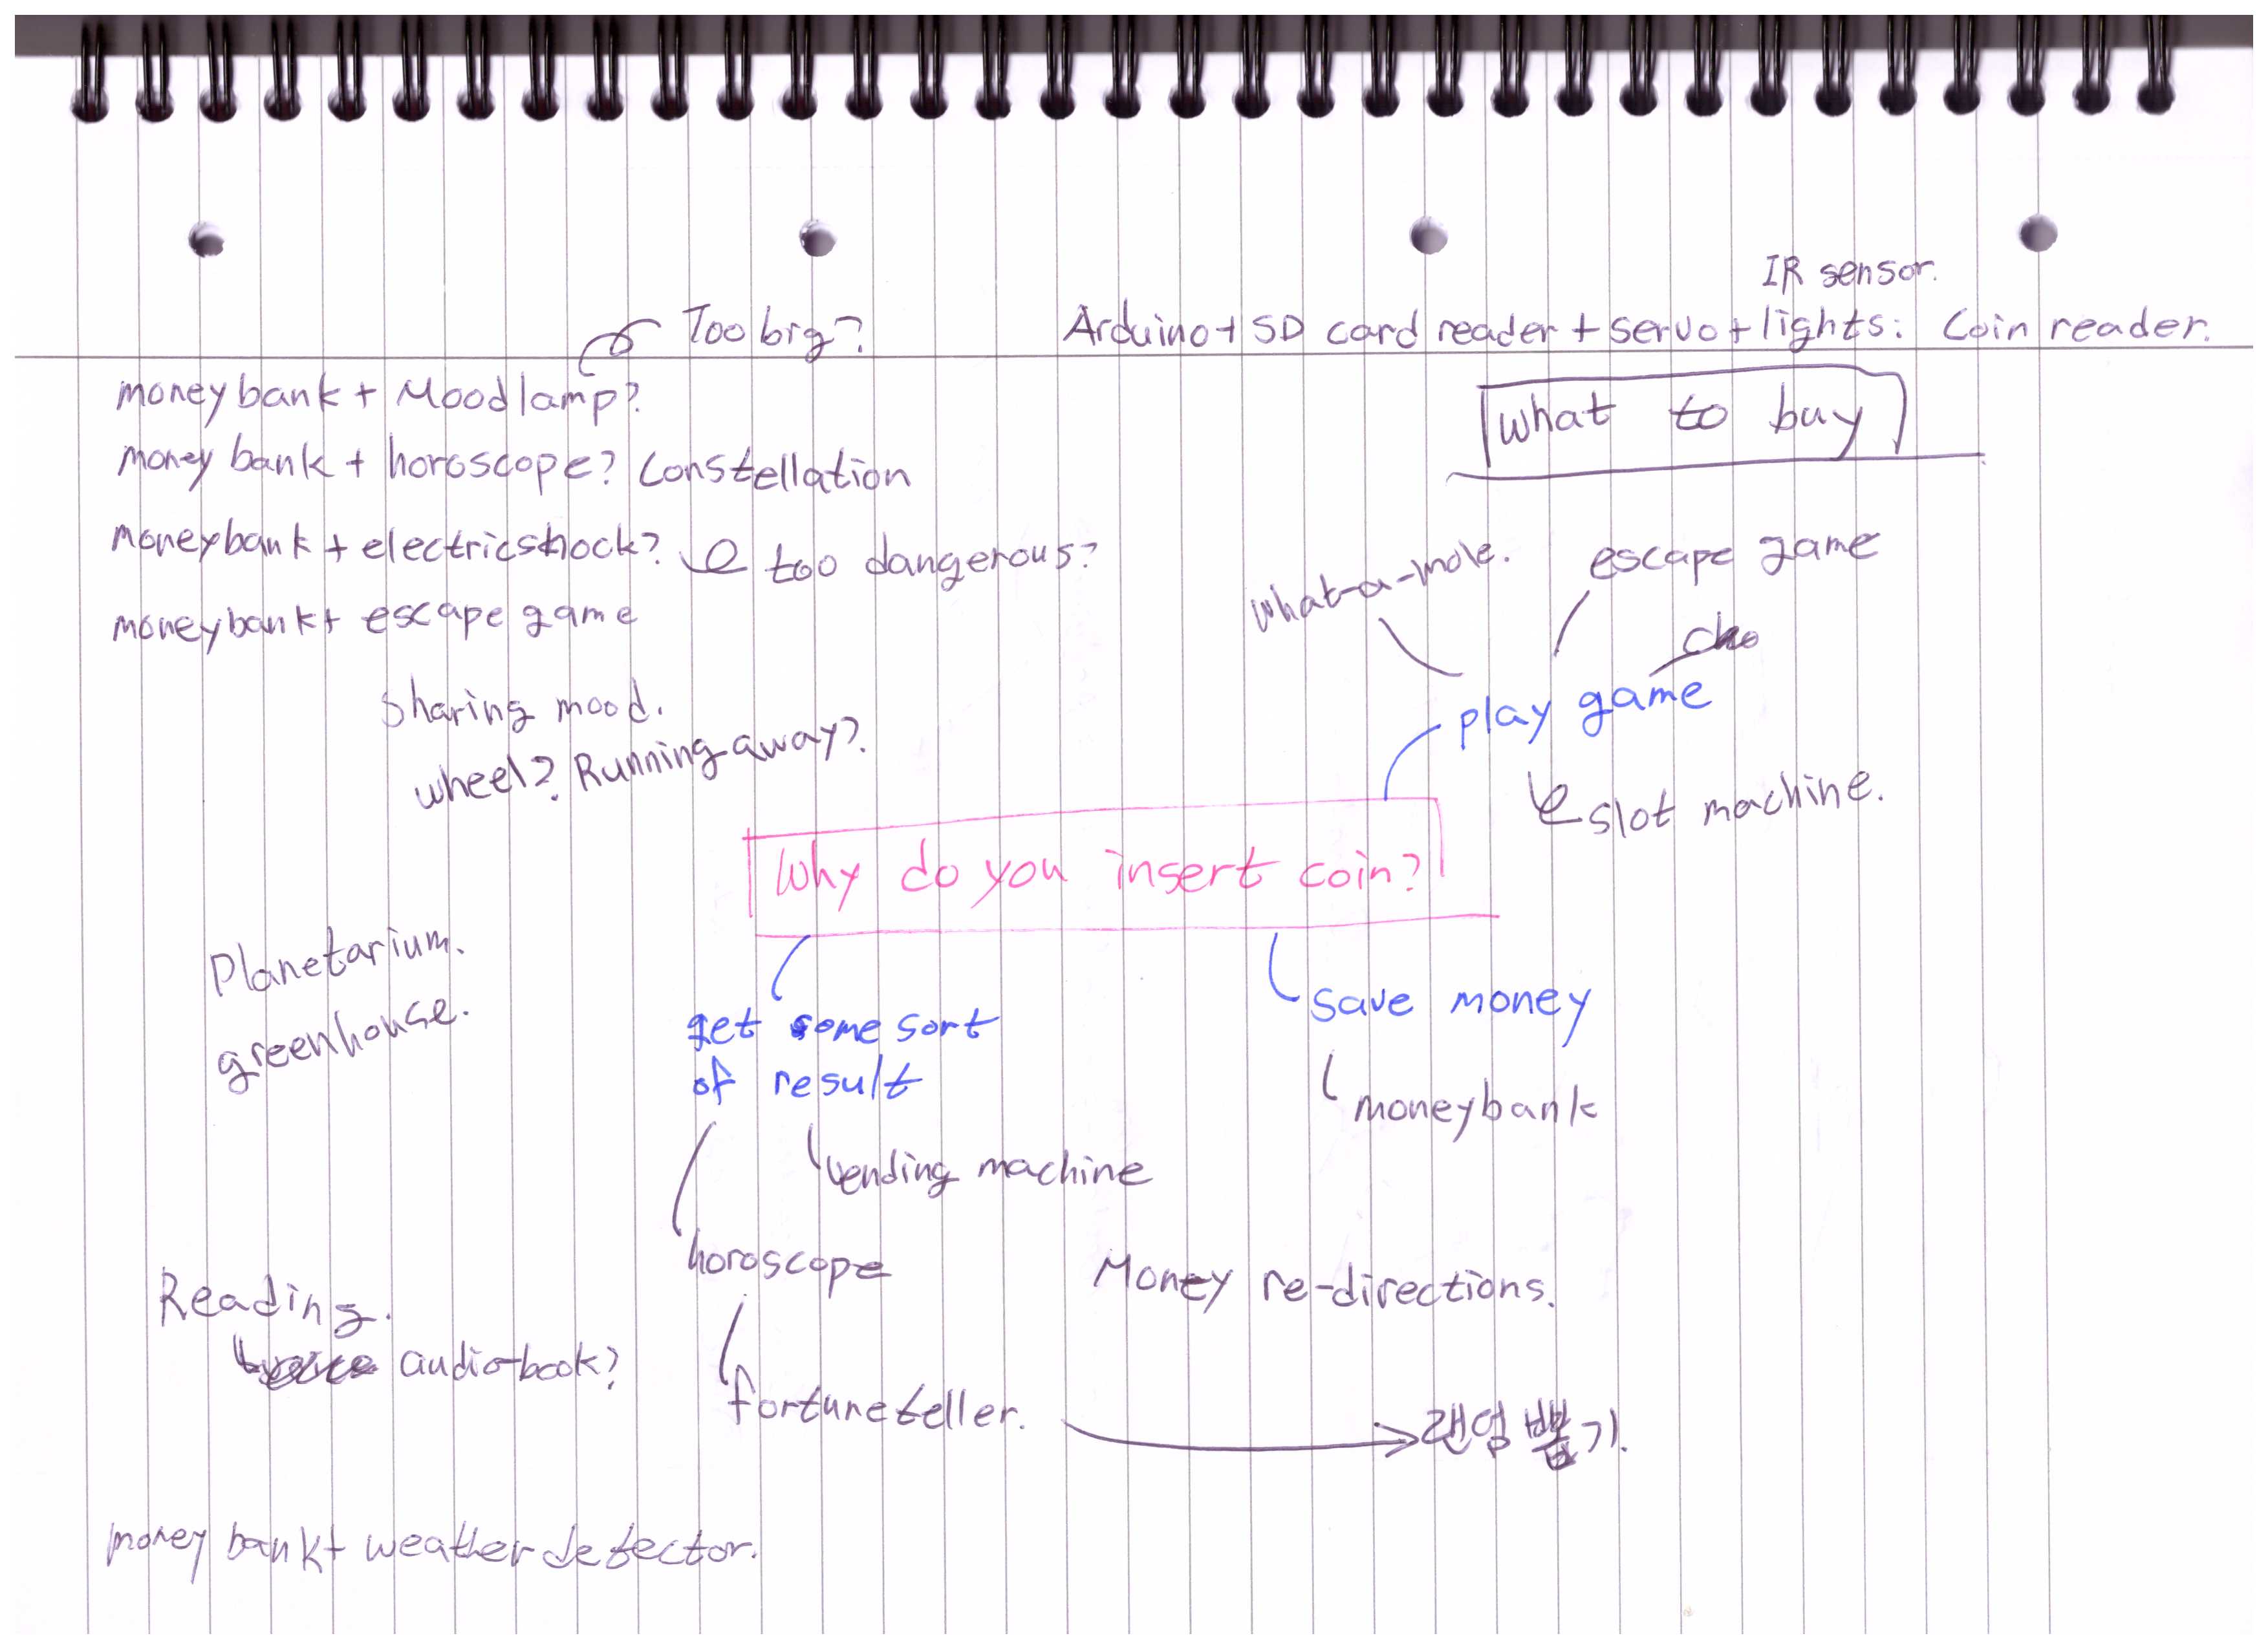 IR sensor.
Too big?
Arduino + SD card reader + servo + lights: Coin reader.
moneybank + Moodlamp?
what to buy
money bank + horoscope? Constellation
moneybank + electricshock? too dangerous?
moneybank + escape game
what-a-mole.
escape game
play game
slot machine.
Sharing mood.
wheel? Running away?
Why do you insert coin?
Planetarium.
greenhouse.
get some sort
of result
save money
moneybank
vending machine
horoscope
Money re-directions.
Reading.
audio-book?
fortuneteller.
랜덤 뽑기.
money bank + weather detector.